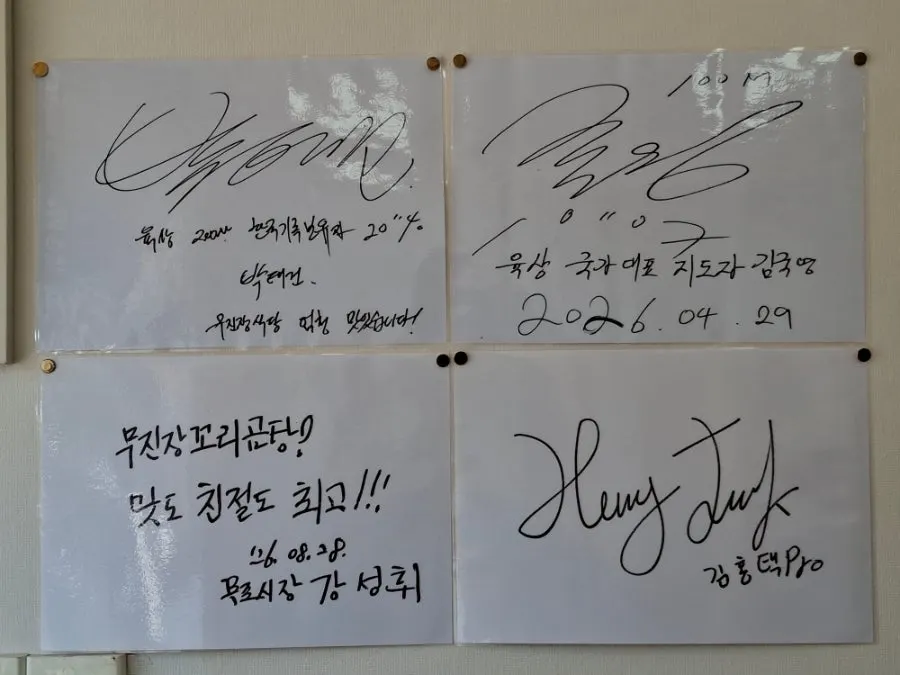 육상 200m 한국기록보유자 20"4.
박태건.
무진장식당 엄청 맛있습니다!
100M
10"07
육상 국가대표 지도자 김국영
2026.04.29
무진장꼬리곰탕!
맛도 친절도 최고!!!
'26. 08. 28.
목포시장 강성휘
김홍택Pro